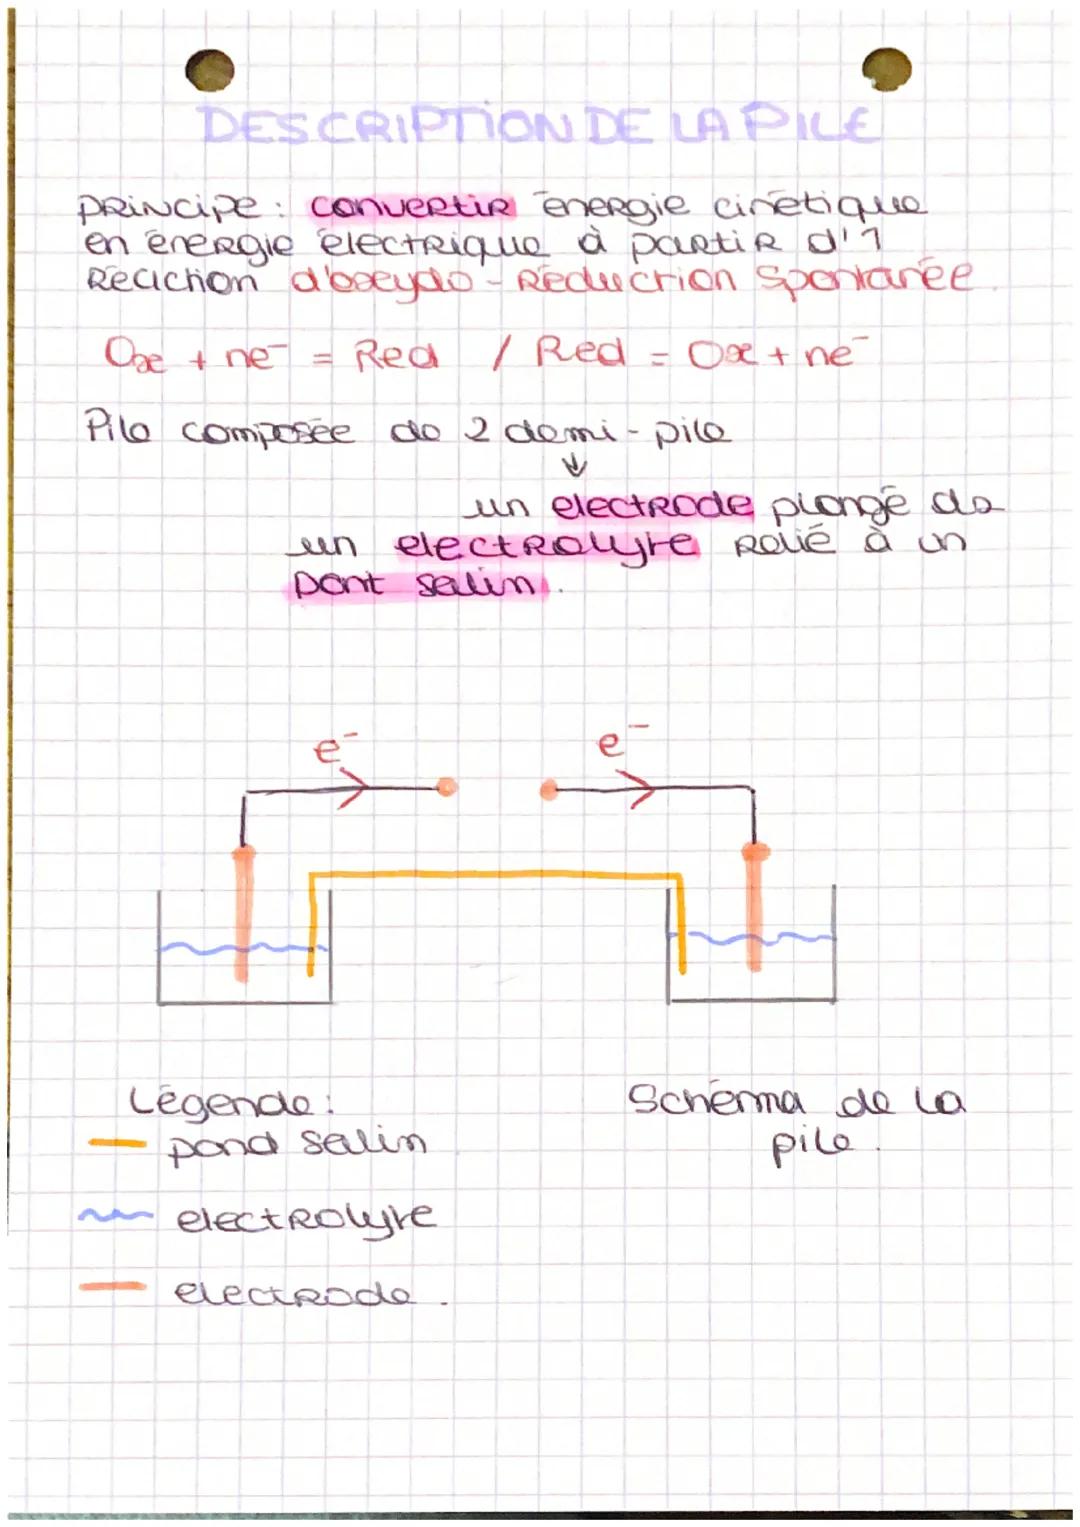 DESCRIPTION DE LA PILE
PRINCIPE : convertir énergie cinétique
en énergie électrique à partir d'1
Réaction d'oxydo-Réduction spontanée.
Ox + ne⁻ = Red / Red = Ox + ne⁻
Pile composée de 2 demi-pile
↓
un electrode plongé ds
un electrolyte relié à un
pont salin.
e⁻ e⁻
Légende :
pond salin
electrolyte
electrode.
Schéma de la
pile.